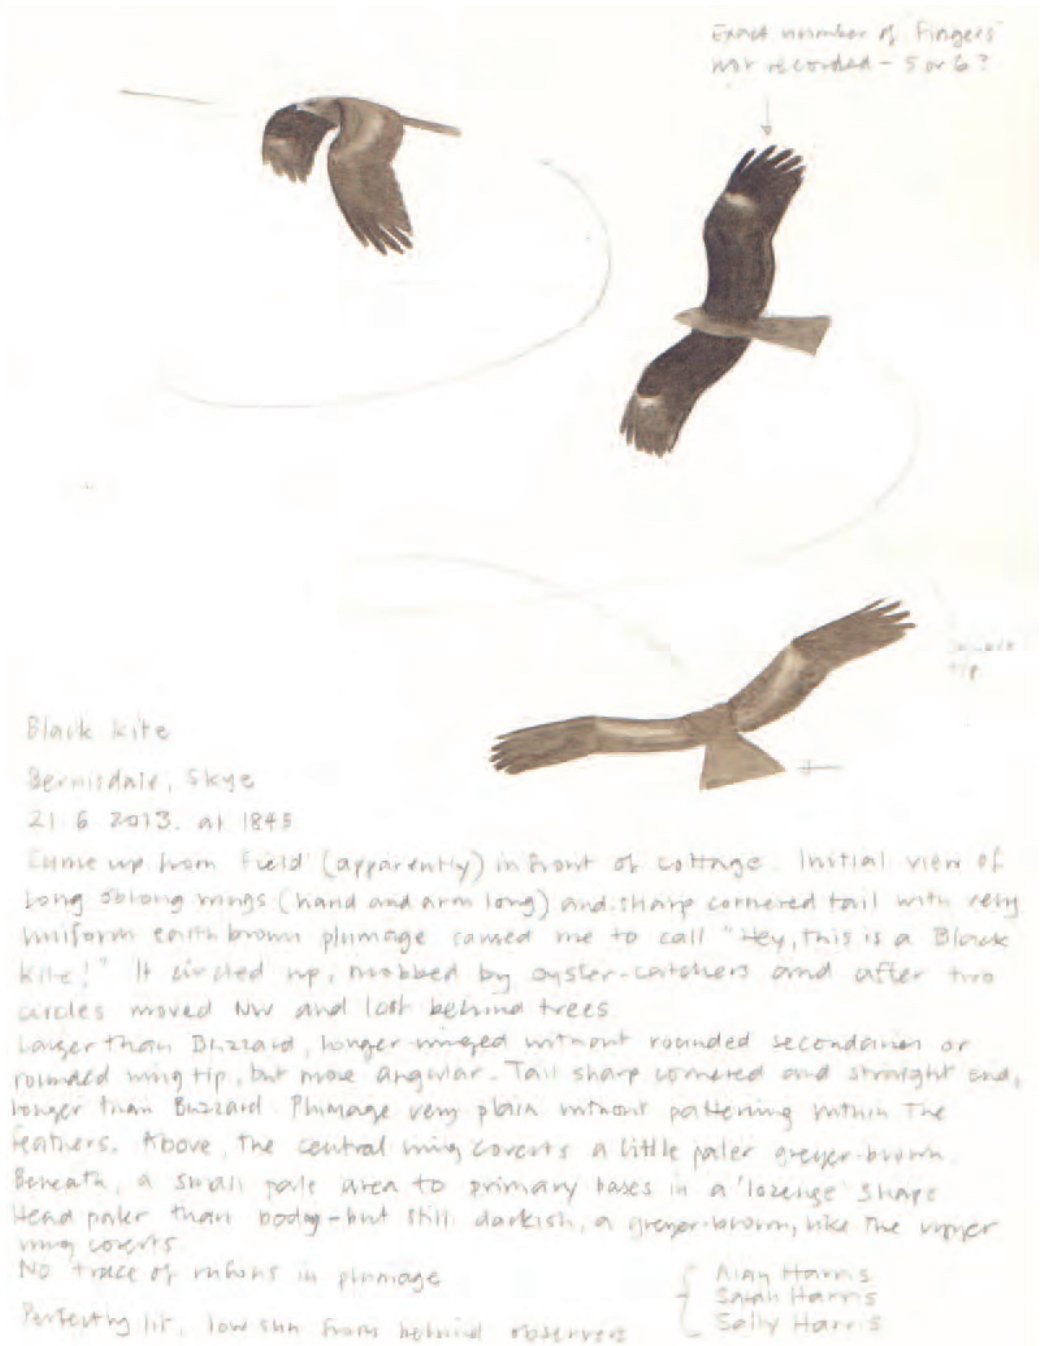 Exact number of 'Fingers'
not recorded - 5 or 6?
square
tip
Black kite
Bernisdale, Skye
21 6 2013. at 1845
Came up from field (apparently) in front of cottage. Initial view of
long oblong wings (hand and arm long) and sharp cornered tail with very
uniform earth brown plumage caused me to call "Hey, this is a Black
kite!" It circled up, mobbed by oyster-catchers and after two
circles moved NW and lost behind trees.
Larger than Buzzard, longer-winged without rounded secondaries or
rounded wing tip, but more angular. Tail sharp cornered and straight end,
longer than Buzzard. Plumage very plain without patterning within the
feathers. Above, the central wing coverts a little paler greyer-brown.
Beneath, a small pale area to primary bases in a 'lozenge' shape
Head paler than body - but still darkish, a greyer-brown, like the upper
wing coverts.
No trace of rufous in plumage
Perfectly lit, low sun from behind observers
Alan Harris
Sarah Harris
Sally Harris